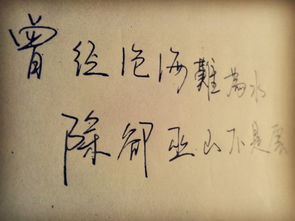 曾经沧海難為水
除却巫山不是雲